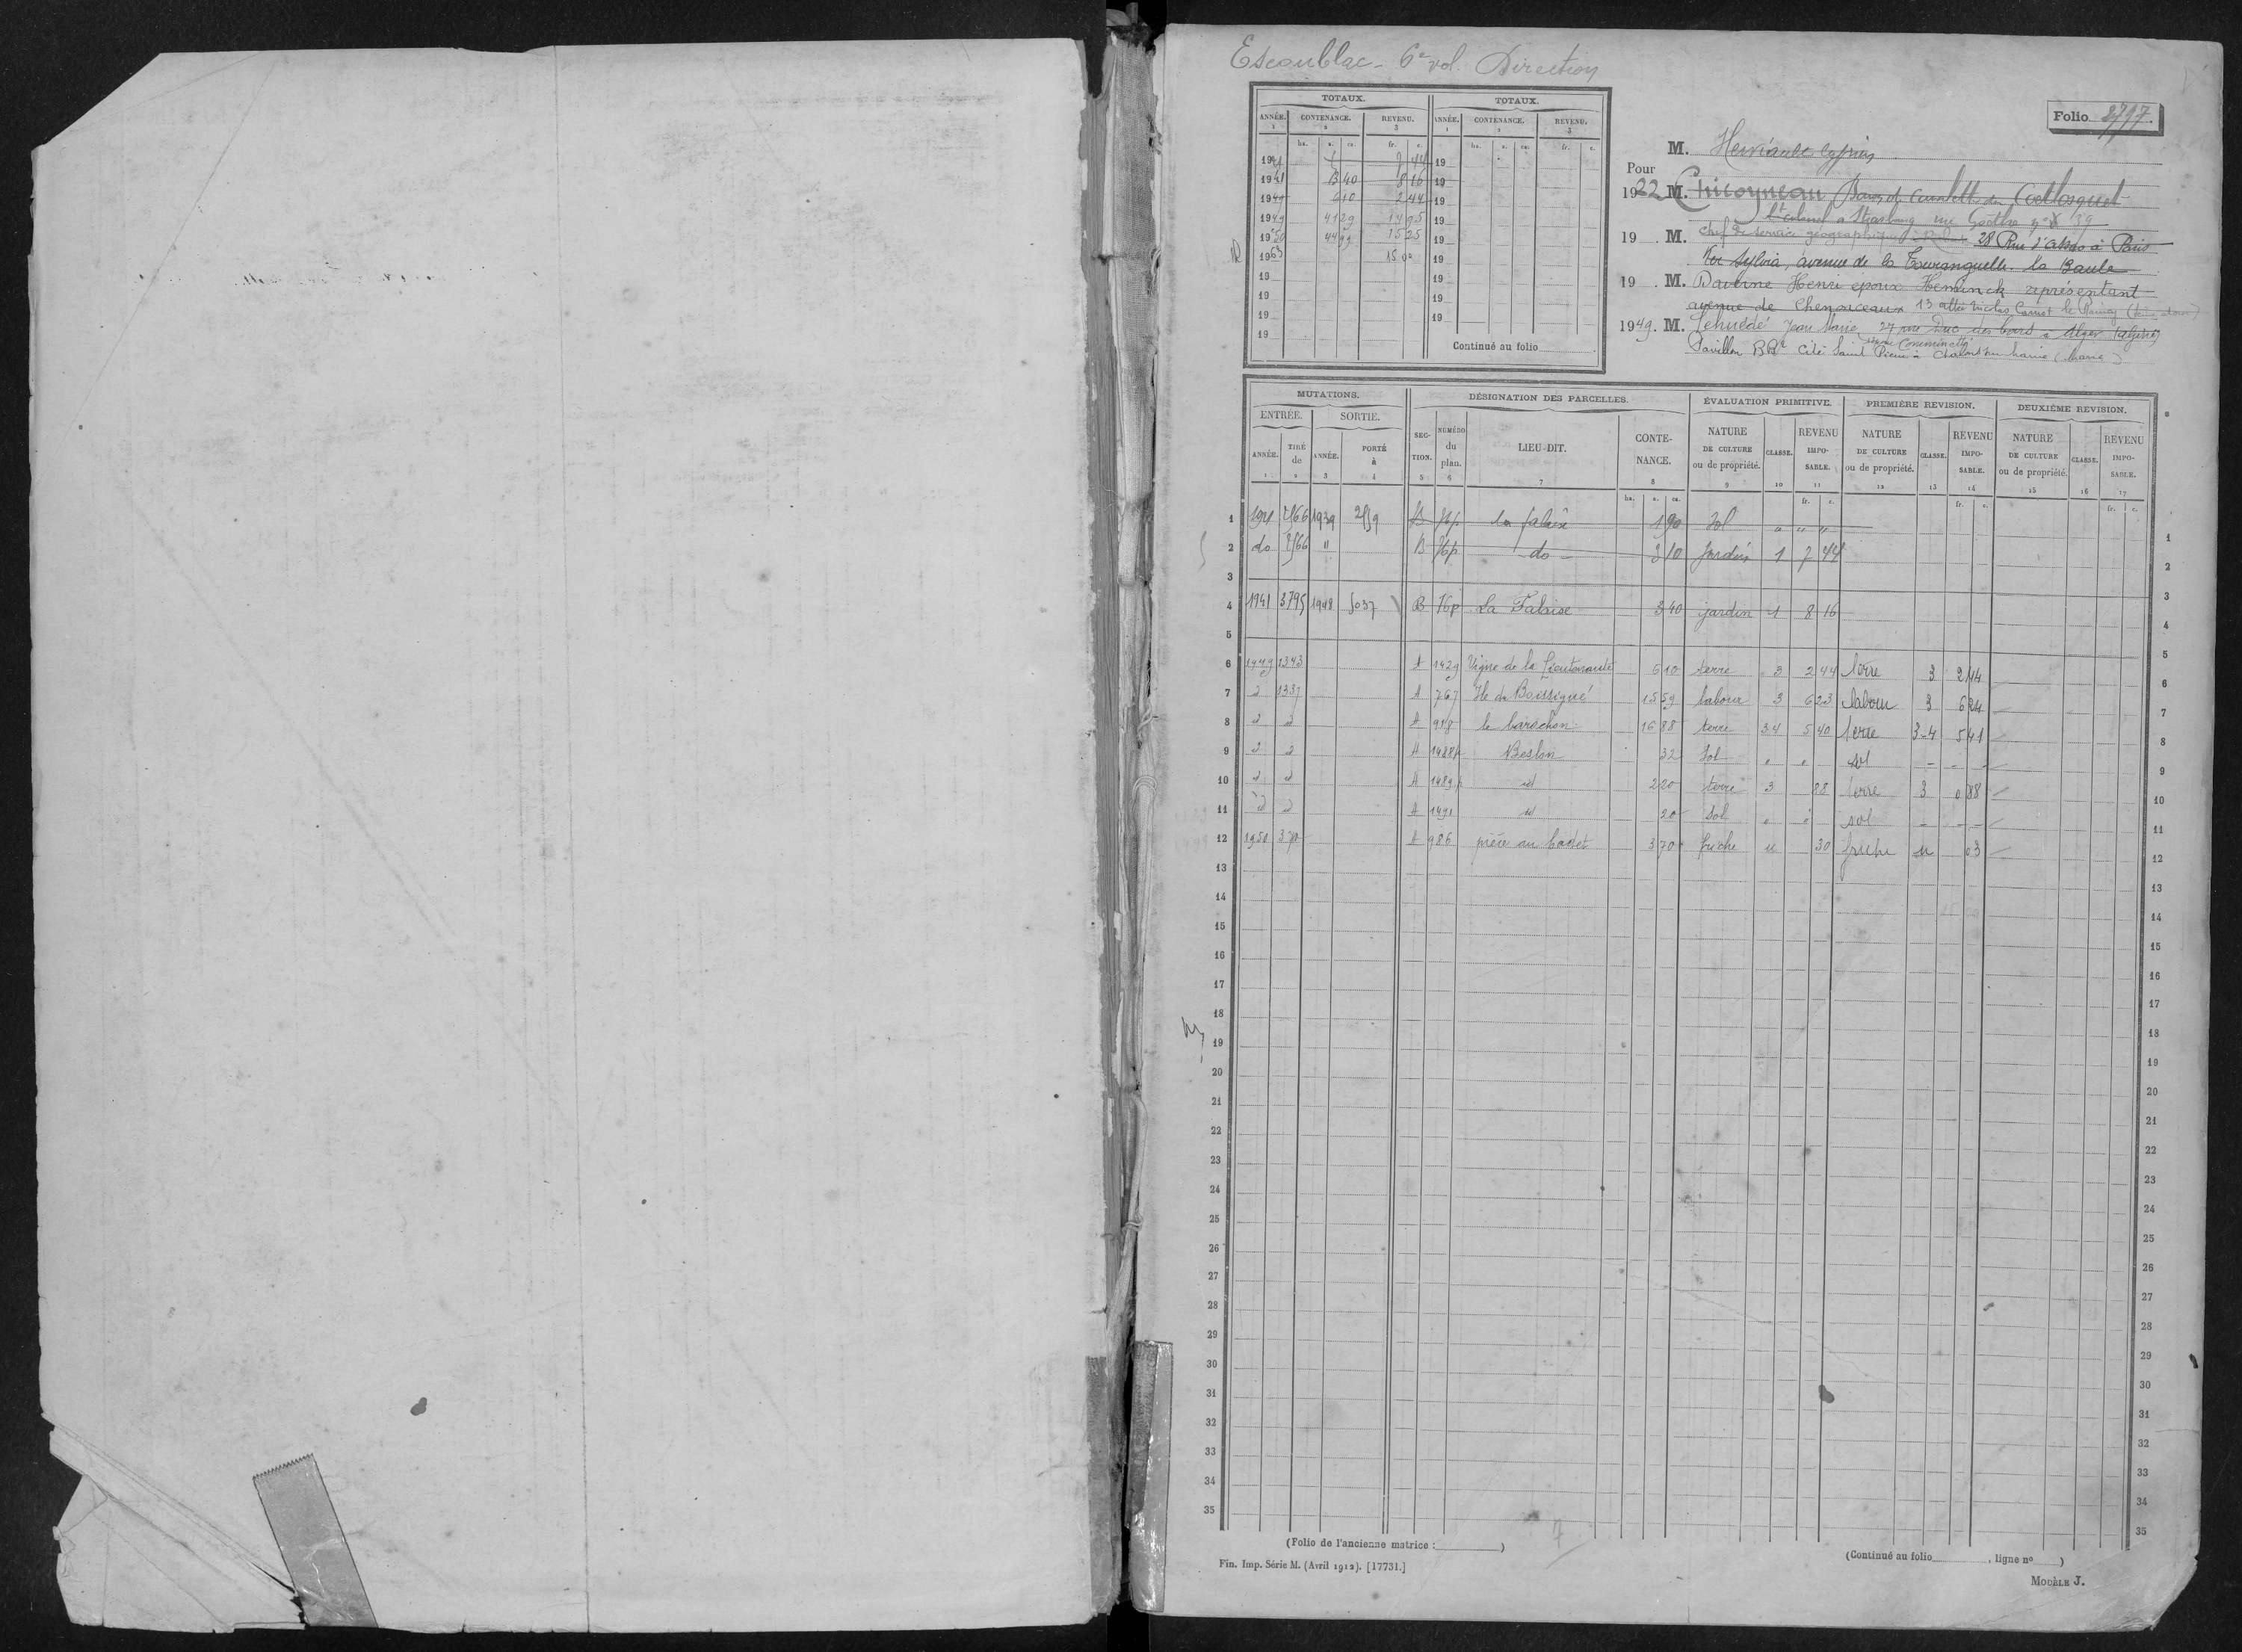 Escoublac - 6e vol. Direction
Folio 2797.
TOTAUX. TOTAUX.
ANNÉE. CONTENANCE. REVENU. ANNÉE. CONTENANCE. REVENU.
1 2 3 1 2 3
ha. a. ca. fr. c. ha. a. ca. fr. c.
19 7 44 19
1941 3 40 8 16 19
1949 6 10 2 44 19
1949 41 29 14 95 19
1950 44 99 15 25 19
1953 15 00 19
19 19
19 19
19 19
19
Continué au folio
M. Heriault
Pour
1922 M. Chicoyneau Baron du Coetlosquet
Lt Colonel à Strasbourg rue Goethe
19 . M. Chef de service géographique 28 Rue d'Assas à Paris
Ker Sylvia, avenue de la Tourangelle. la Baule
19 . M. Daverne Henri epoux Heminck représentant
avenue de Chenonceaux 13 allée Nicolas Carnot le Raincy
1949. M. Lehuédé Jean Marie 27 rue Duc des Cars à Alger (algérie)
Pavillon Cité Saint Pierre à Chalons sur marne (Marne)
MUTATIONS. DÉSIGNATION DES PARCELLES. ÉVALUATION PRIMITIVE. PREMIÈRE REVISION. DEUXIÈME REVISION.
ENTRÉE. SORTIE.
ANNÉE. TIRÉ de ANNÉE. PORTÉ à SECTION. NUMÉRO du plan. LIEU-DIT. CONTENANCE. NATURE DE CULTURE ou de propriété. CLASSE. REVENU IMPOSABLE. NATURE DE CULTURE ou de propriété. CLASSE. REVENU IMPOSABLE. NATURE DE CULTURE ou de propriété. CLASSE. REVENU IMPOSABLE.
1 2 3 4 5 6 7 8 9 10 11 12 13 14 15 16 17
ha. a. ca. fr. c. fr. c. fr. c.
1 1939 B 76p la falaise 1 90 Sol " " " 1
2 do " B 76p do 3 10 Jardin 1 7 44 2
3 3
4 1941 3795 1948 5037 B 76p La Falaise 3 40 jardin 1 8 16 4
5 5
6 1949 1343 A 1429 Vigne de la Lieutenante 6 10 terre 3 2 44 terre 3 2 44 6
7 d 1337 A 767 Ile de Boissigné 15 59 labour 3 6 23 labour 3 6 24 7
8 d d A 918 16 88 terre 3 4 5 40 terre 3-4 5 41 8
9 d d A 1488p Beslon 32 Sol " " sol - - - 9
10 d d A 1489p d 2 20 terre 3 88 terre 3 0 88 10
11 d d A 1491 d 20 Sol " " sol - - - 11
12 1950 370 A 986 3 70 friche u 30 friche u 03 12
13 13
14 14
15 15
16 16
17 17
18 18
19 19
20 20
21 21
22 22
23 23
24 24
25 25
26 26
27 27
28 28
29 29
30 30
31 31
32 32
33 33
34 34
35 35
(Folio de l'ancienne matrice : )
(Continué au folio , ligne nº )
Fin. Imp. Série M. (Avril 1912). [17731.]
MODÈLE J.